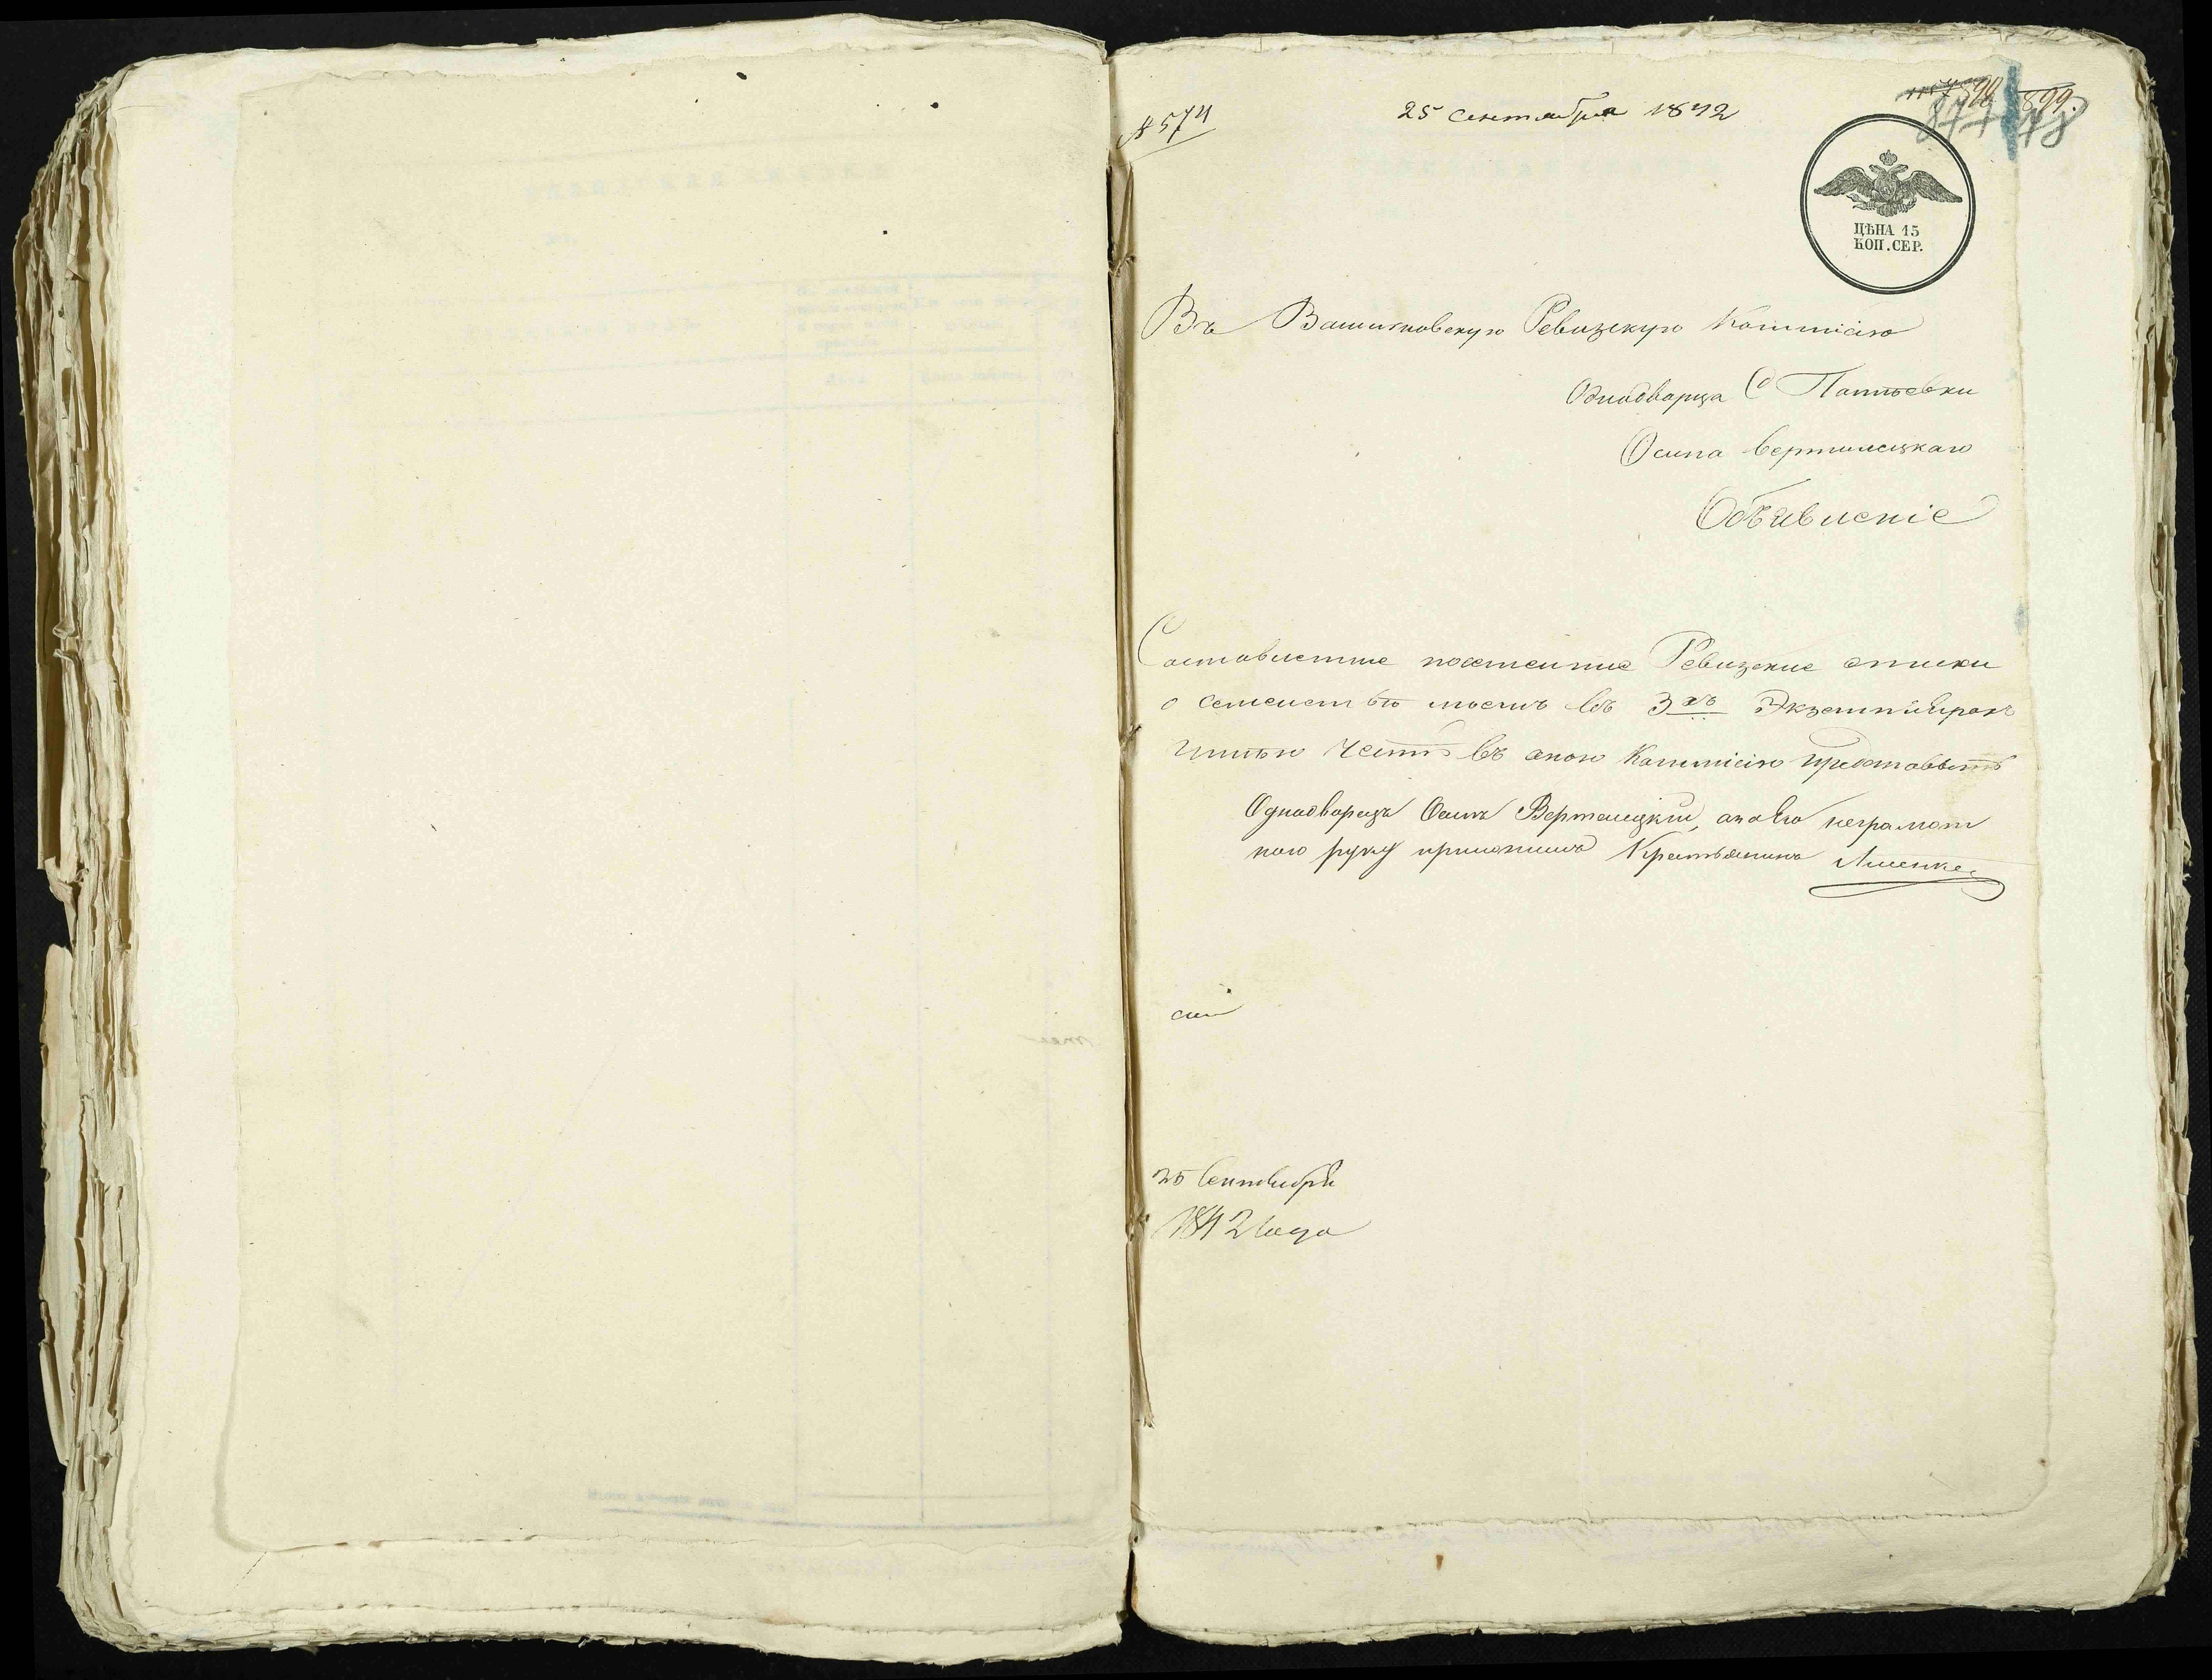 № 574
25 сентября 1842
899.
877 78
ЦѢНА 15
КОП. СЕР.
Въ Ревизскую Коммисію
Однодворца С
Осипа Вертелецкаго
Объявленіе
Составленные Ревизские
о семействѣ моемъ въ 3хъ Экземплярахъ
имѣю честь въ оною Коммисію представить
Однодворецъ Осипъ Вертелецкій, а за его неграмот
ного руку приложилъ Крестьянинъ
25 Сентября
1842 года